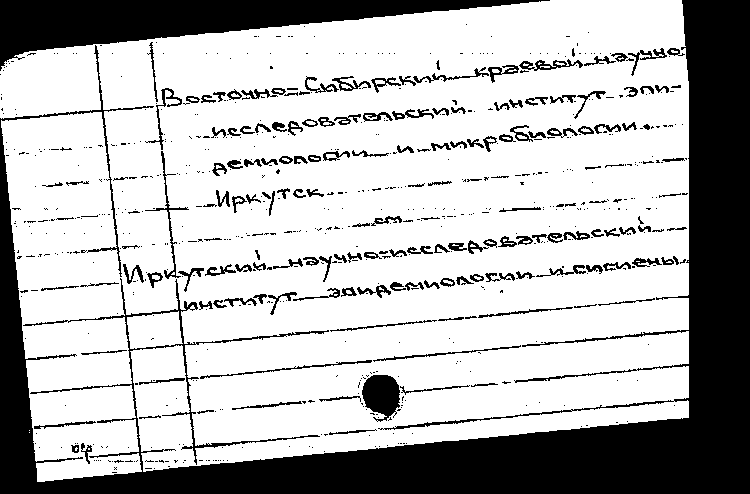 Восточно-Сибирский краевой научно-
исследовательский институт эпи-
демиологии и микробиологии.
Иркутск
см
Иркутский научно-исследовательский
институт эпидемиологии и гигиены